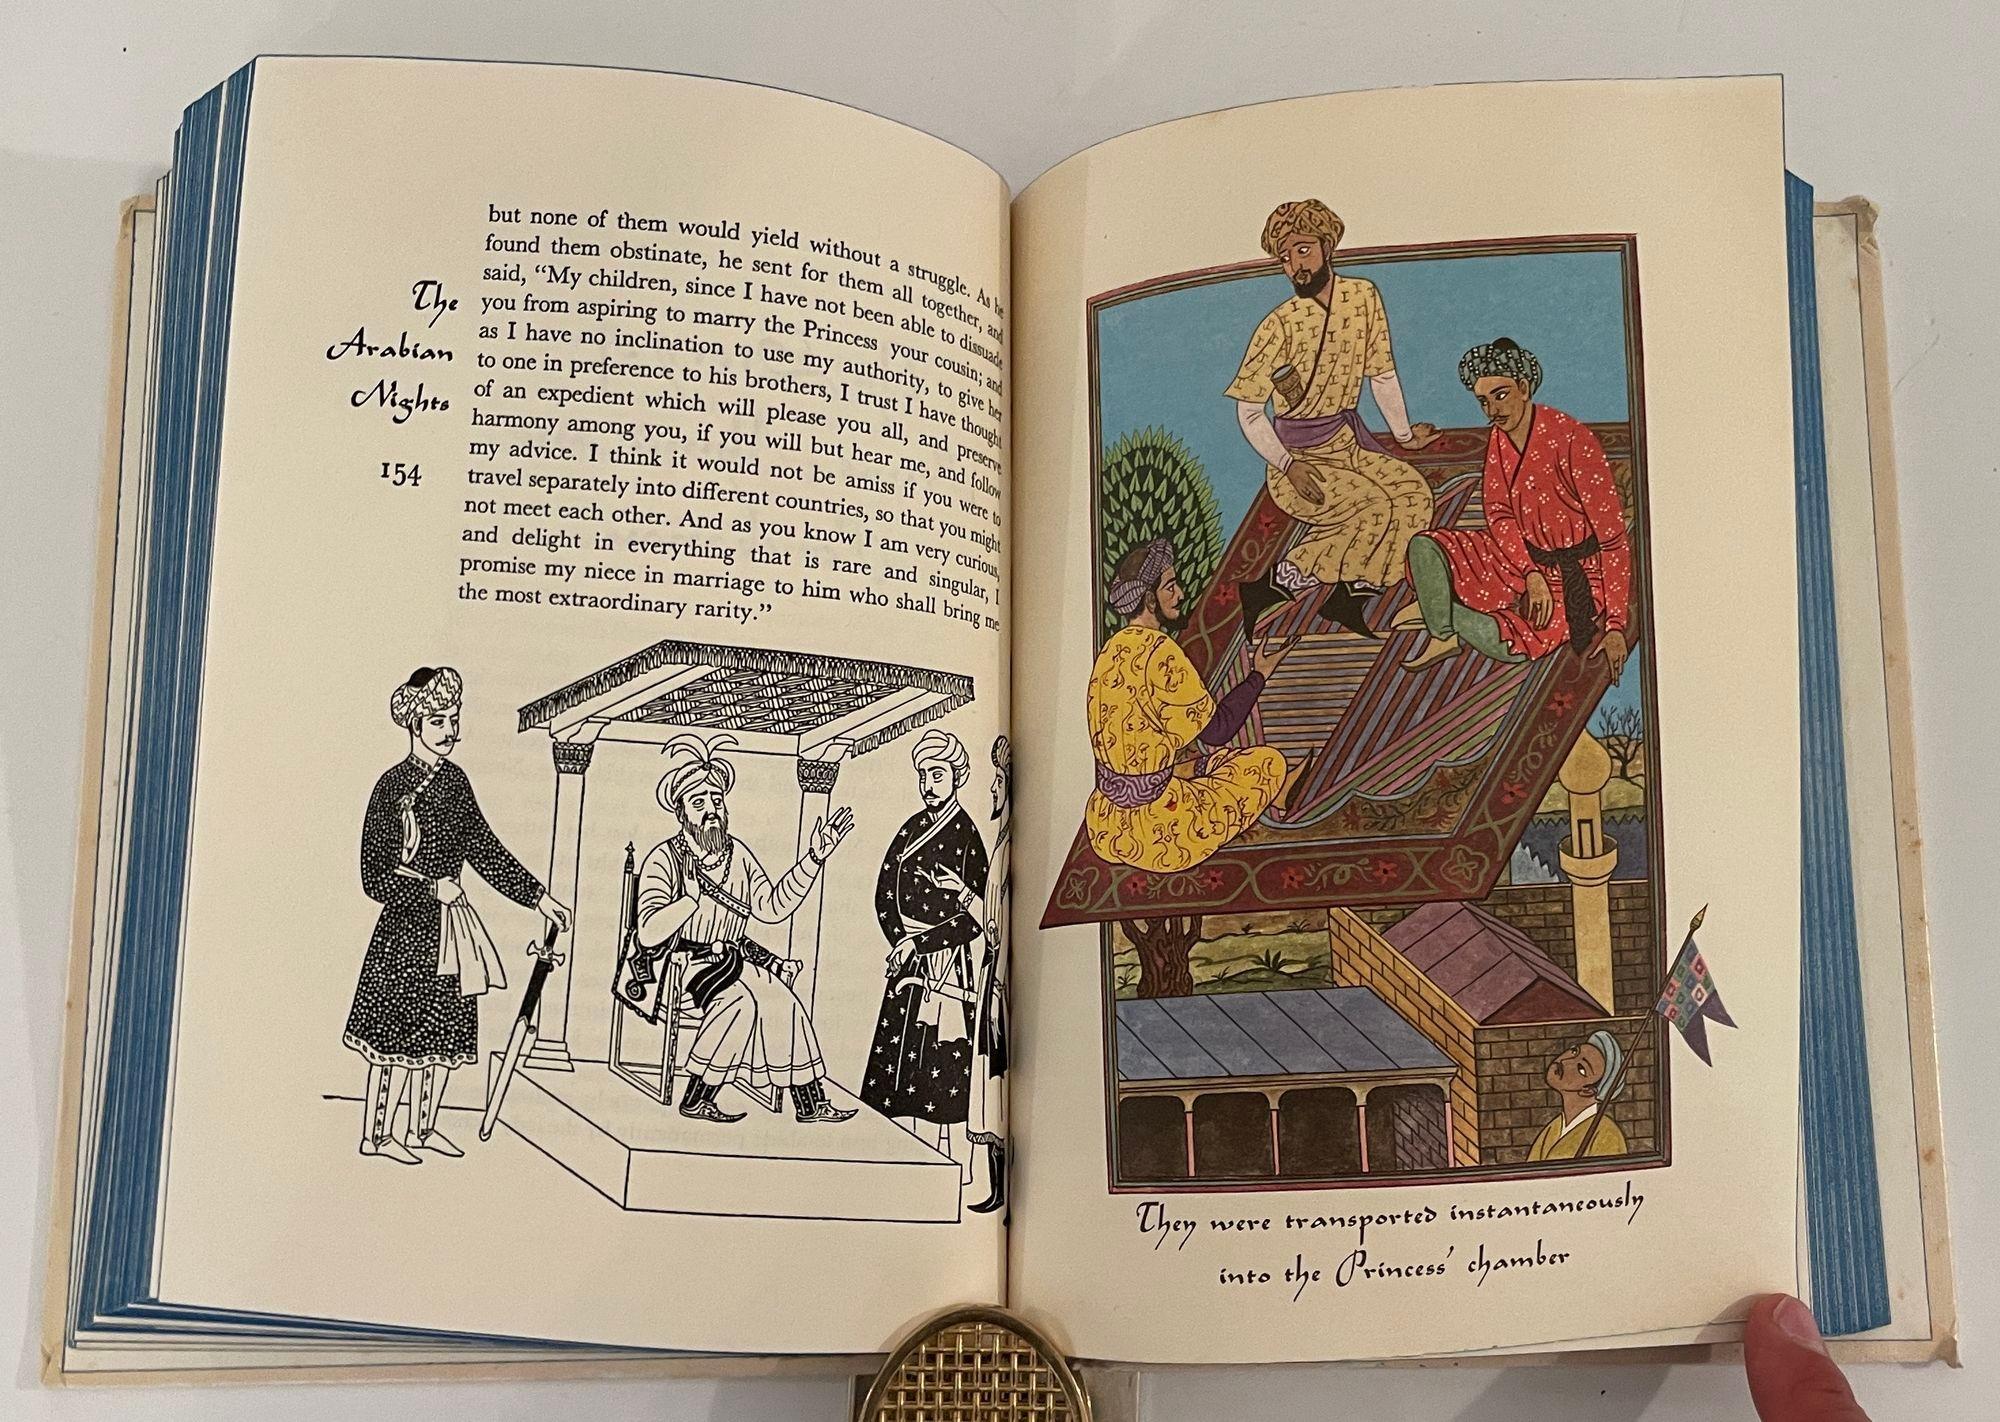 The
Arabian
Nights
154
but none of them would yield without a struggle. As he
found them obstinate, he sent for them all together, and
said, “My children, since I have not been able to dissuade
you from aspiring to marry the Princess your cousin; and
as I have no inclination to use my authority, to give her
to one in preference to his brothers, I trust I have thought
of an expedient which will please you all, and preserve
harmony among you, if you will but hear me, and follow
my advice. I think it would not be amiss if you were to
travel separately into different countries, so that you might
not meet each other. And as you know I am very curious,
and delight in everything that is rare and singular, I
promise my niece in marriage to him who shall bring me
the most extraordinary rarity.”
They were transported instantaneously
into the Princess’ chamber